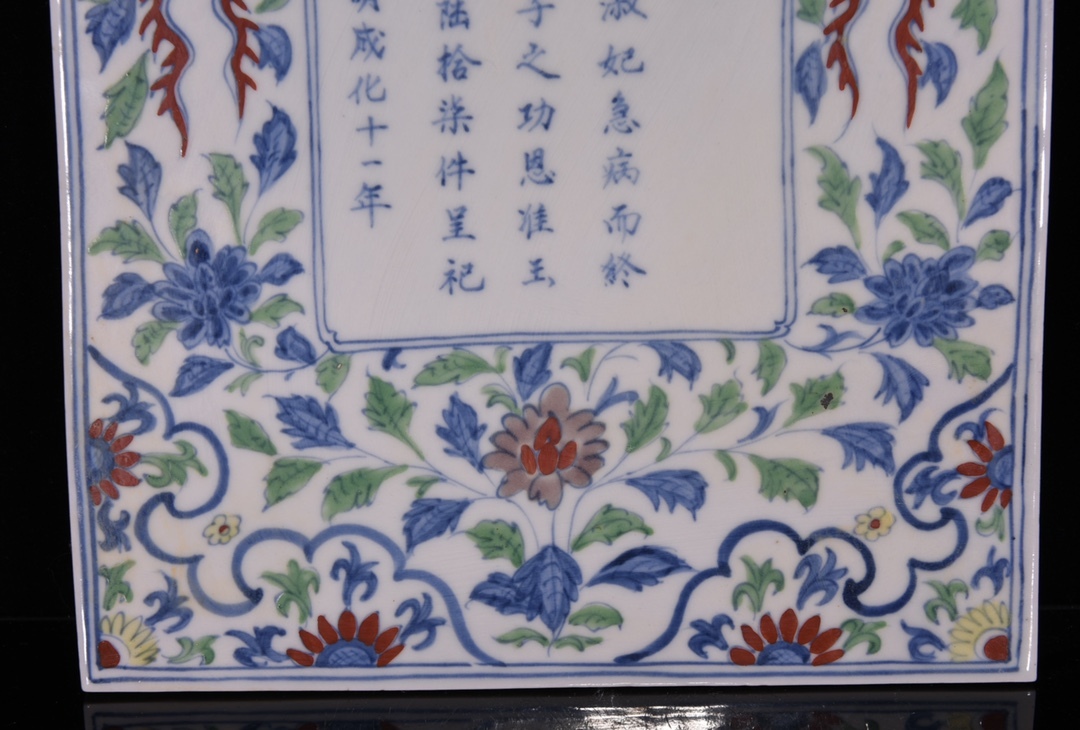 淑妃急病而終
子之功恩准玉
陆拾柒件呈祀
明成化十一年